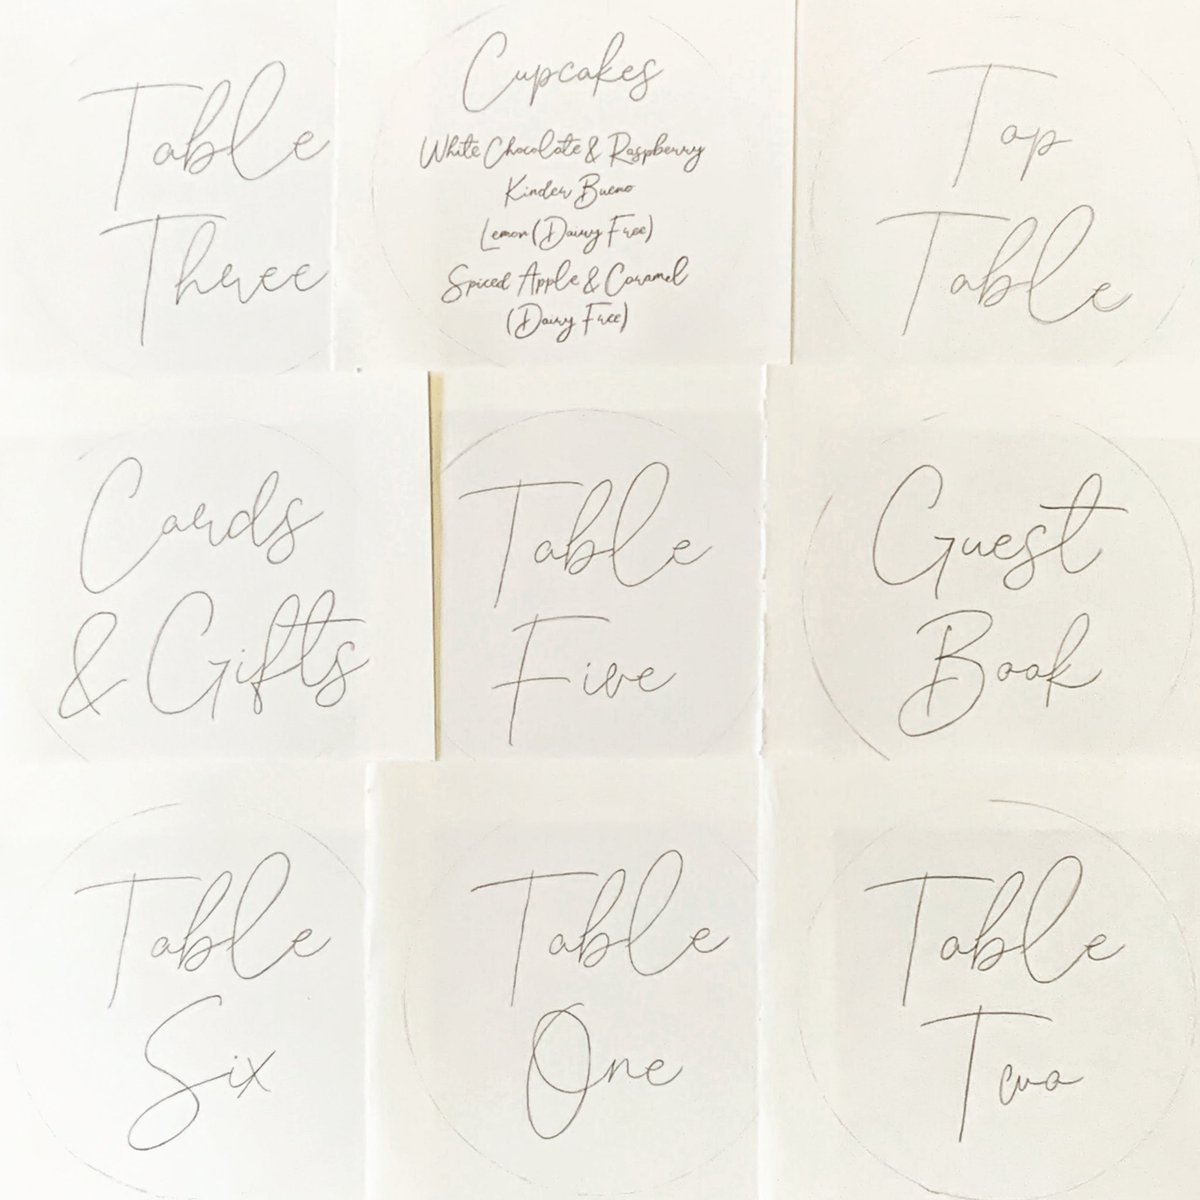 Table
Three
Cupcakes
White Chocolate & Raspberry
Kinder Bueno
Lemon (Dairy Free)
Spiced Apple & Caramel
(Dairy Free)
Top
Table
Cards
& Gifts
Table
Five
Guest
Book
Table
Six
Table
One
Table
Two